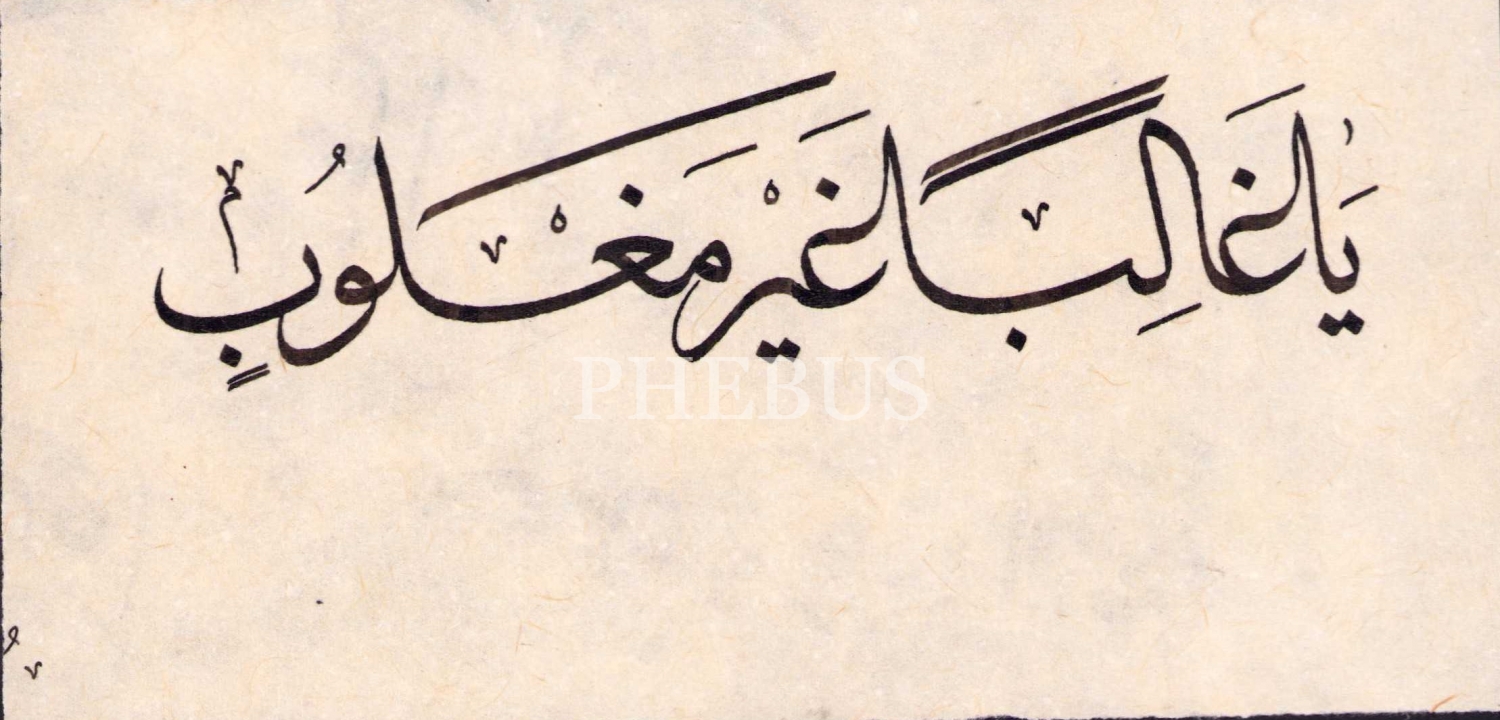 يَا غَالِبًا غَيْرَ مَغْلُوبٍ
PHEBUS